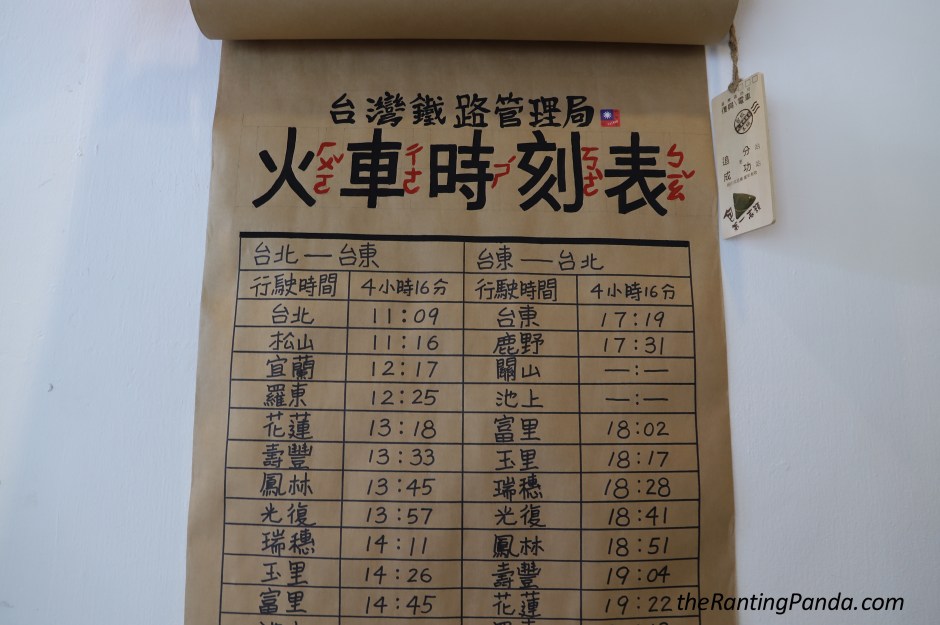 台灣鐵路管理局
火車時刻表
ㄏㄨㄛˇ ㄔㄜ ㄕˊ ㄎㄜˋ ㄅㄧㄠˇ
台北—台東 台東—台北
行駛時間 4小時16分 行駛時間 4小時16分
台北 11:09 台東 17:19
松山 11:16 鹿野 17:31
宜蘭 12:17 關山 —:—
羅東 12:25 池上 —:—
花蓮 13:18 富里 18:02
壽豐 13:33 玉里 18:17
鳳林 13:45 瑞穗 18:28
光復 13:57 光復 18:41
瑞穗 14:11 鳳林 18:51
玉里 14:26 壽豐 19:04
富里 14:45 花蓮 19:22
追分
成功
theRantingPanda.com